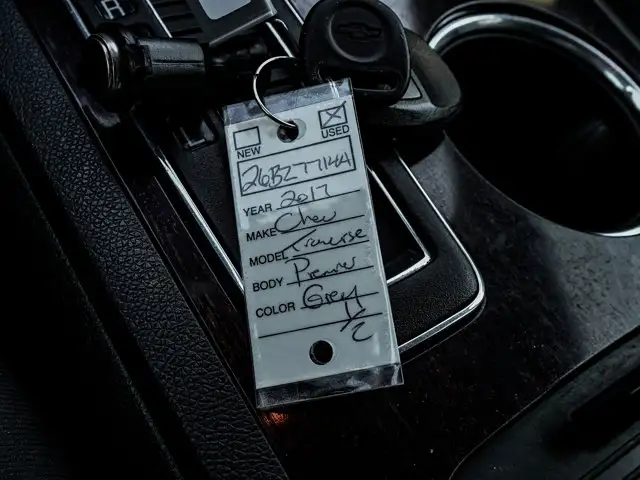 R
NEW USED
26BZ7714A
YEAR 2017
MAKE Chev
MODEL Traverse
BODY Premier
COLOR Grey
1/2